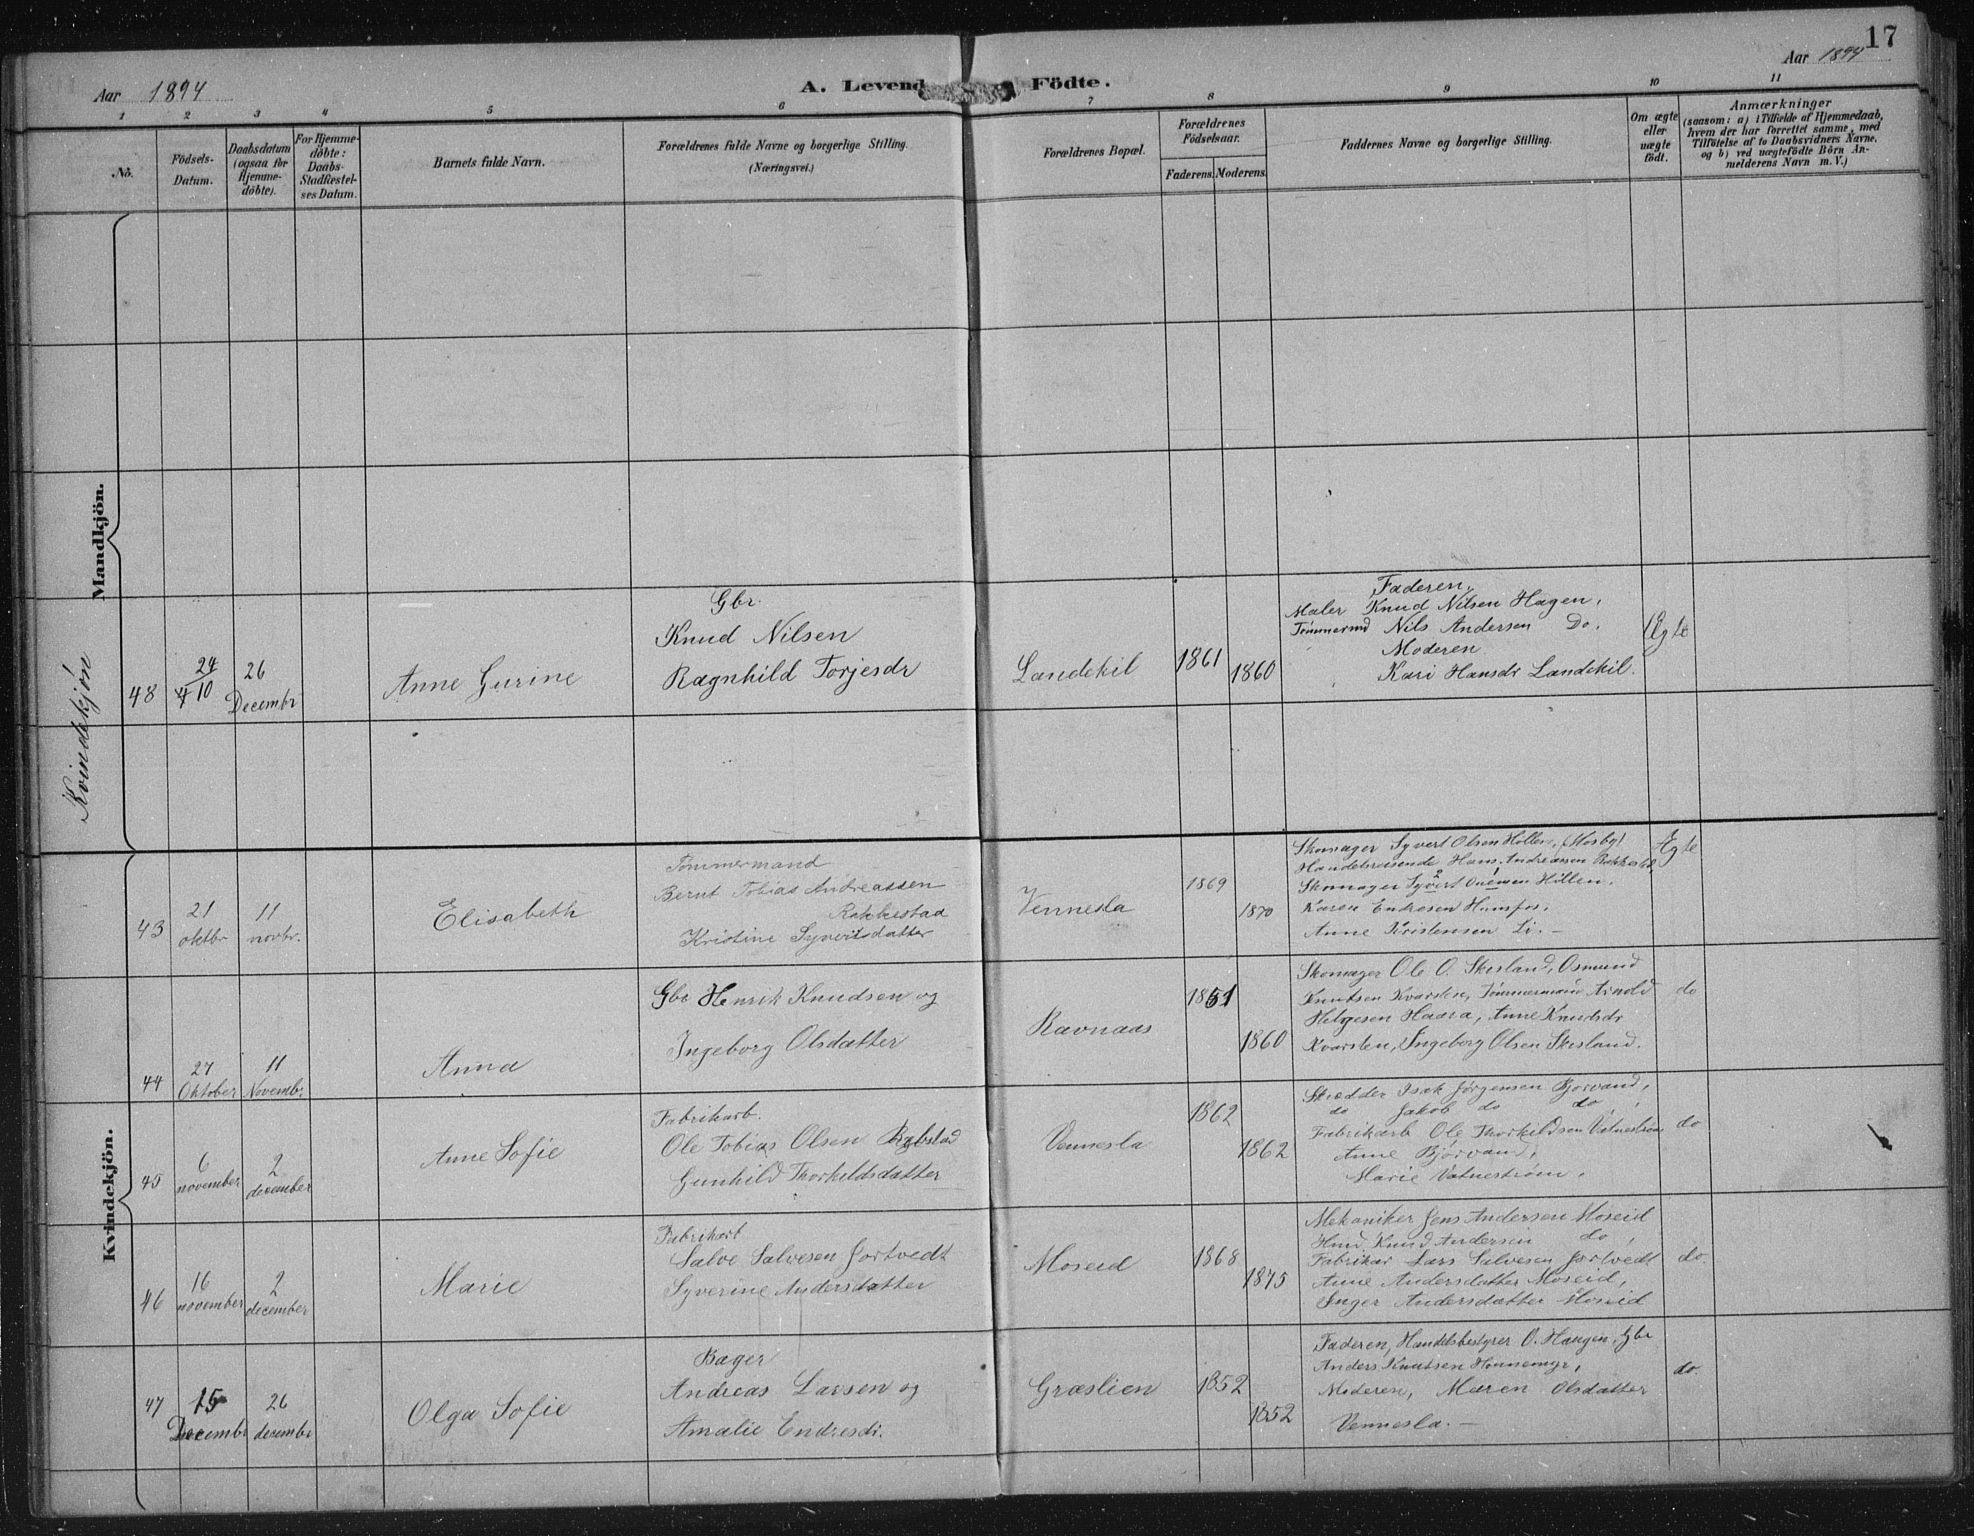 17
Aar 1894
A. Levende Födte.
Aar 1894
1 2 3 4 5 6 7 8 9 10 11
No.
Födsels-
Datum.
Daabsdatum
(ogsaa for
Hjemme-
döbte).
For Hjemme-
döbte:
Daabs-
Stadfæstel-
ses Datum.
Barnets fulde Navn.
Forældrenes fulde Navne og borgerlige Stilling.
(Næringsvei.)
Forældrenes Bopæl.
Forældrenes
Födselsaar.
Faderens. Moderens.
Faddernes Navne og borgerlige Stilling.
Om ægte
eller
uægte
födt.
Anmærkninger
(saasom: a) i Tilfælde af Hjemmedaab,
hvem der har forrettet samme, med
Tilföielse af to Daabsvidners Navne,
og b) ved uægtefödte Börn An-
melderens Navn m. V.)
Mandkjön.
Kvindekjøn
48
24
4 10
26
Decembr
Anne Gurine
Gbr.
Knud Nilsen
Ragnhild Torjesdr
Landekil
1861
1860
Faderen,
Maler Knud Nilsen Hagen,
Tømmermd Nils Andersen Do.
Moderen
Kari Hansdr Landekil.
Ægte
Kvindekjön.
43
21
oktbr
11
novbr.
Elisabeth
Tømmermand
Bernt Tobias Andreassen
Rakkestad
Kristine Syvertsdatter
Vennesla
1869
1870
Skomager Syvert Olsen Hollen, (Mosby)
Handelsreisende Hans Andreassen Rakkestad
Skomager Syvert Hillen.
Karen Endresen Hunsfos.
Anne Kristensen Li.
Ægte
44
27
Oktober
11
Novembr.
Anna
Gbr Henrik Knudsen og
Ingeborg Olsdatter
Ravnaas
1851
1860
Skomager Ole O. Skisland, Osmund
Knutsen Kvarsten, Tømmermand Arnold
Helgesen Haara, Anne Knudsdr
Kvarsten, Ingeborg Olsen Skisland.
do
45
6
november
2
december
Anne Sofie
Fabrikarb.
Ole Tobias Olsen Rabstad
Gunhild Thorkildsdatter
Vennesla
1862
1862
Skrædder Isak Jørgensen Bjorvand,
do Jakob do do,
Fabrikarb Ole Thorkildsen Vatnestrøm
Anne Bjørvand,
Marie Vatnestrøm.
do
46
16
november
2
december
Marie
Fabrikarb
Salve Salvesen Jortvedt
Syverine Andersdatter
Moseid
1868
1875
Mekaniker Jens Andersen Moseid
Knud Andersen do,
Fabrikar Lars Salvesen Jortvedt
Anne Andersdatter Moseid,
Inger Andersdatter Moseid
do.
47
15
Decembr
26
decembr
Olga Sofie
Bager
Andreas Larsen og
Amalie Endresdr.
Græslien
1852
1852
Faderen, Handelsbestyrer O. Haugen, Gbr
Anders Knutsen Honnemyr,
Moderen, Maren Olsdatter
Vennesla.
do.